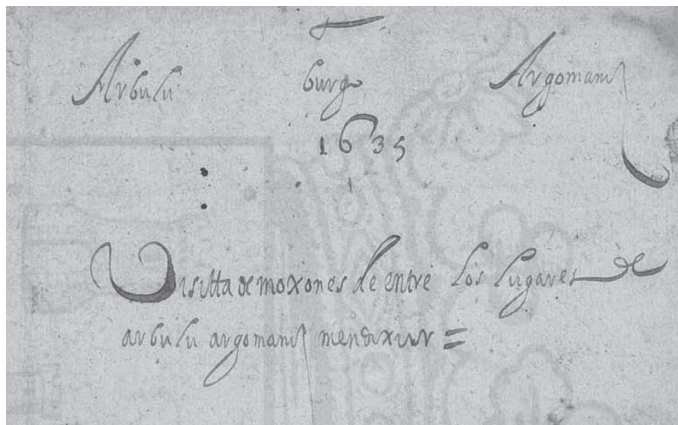 Arbulu burgo Argomaniz
1635
Visitta de moxones de entre los lugares de
arbulu argomaniz mendixur =